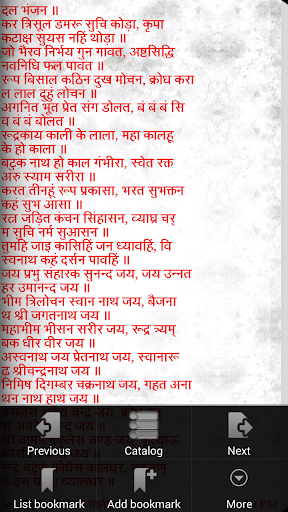 दल भंजन ॥
कर त्रिसुल डमरू सुचि कोड़ा, कृपा
कटाक्ष सुयस नहिं थोड़ा ॥
जो भैरव निर्भय गुन गावत, अष्टसिद्धि
नवनिधि फल पावत ॥
रूप बिसाल कठिन दुख मोचन, क्रोध करा
ल लाल दुहुं लोचन ॥
अगनित भूत प्रेत संग डोलत, बं बं बं सि
व बं बं बोलत ॥
रूद्रकाय काली के लाला, महा कालहू
के हो काला ॥
बटुक नाथ हो काल गंभीरा, स्वेत रक्त
अरु स्याम सरीरा ॥
करत तीनहूं रूप प्रकासा, भरत सुभक्तन
कहं सुभ आसा ॥
रत्न जड़ित कंचन सिंहासन, व्याघ्र चर्
म सुचि नर्म सुआसन ॥
तुमहि जाइ कासिहिं जन ध्यावहिं, वि
स्वनाथ कहं दर्सन पावहिं ॥
जय प्रभु संहारक सुनन्द जय, जय उन्नत
हर उमानन्द जय ॥
भीम त्रिलोचन स्वान नाथ जय, बैजना
थ श्री जगतनाथ जय ॥
महाभीम भीसन सरीर जय, रूद्र त्र्यम्
बक धीर वीर जय ॥
अस्वनाथ जय प्रेतनाथ जय, स्वानारू
ढ़ श्रीचन्द्रनाथ जय ॥
निमिष दिगम्बर चक्रनाथ जय, गहत अना
थन नाथ हाथ जय ॥
Previous Catalog Next
List bookmark Add bookmark More
PM